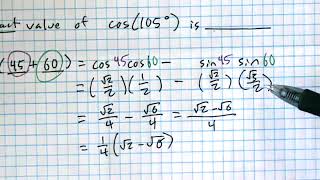 act value of cos(105°) is
(45+60) = cos45cos60 − sin45 sin60
= (√2/2)(1/2) − (√2/2)(√3/2)
= √2/4 − √6/4 = √2−√6/4
= 1/4(√2−√6)